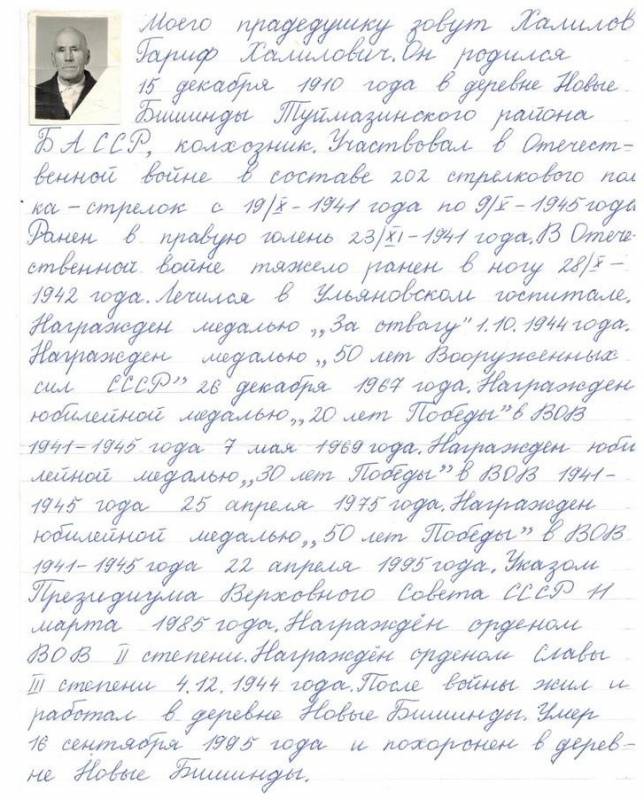 Моего прадедушку зовут Халилов
Гариф Халилович. Он родился
15 декабря 1910 года в деревне Новые
Бишинды Туймазинского района
БАССР, колхозник. Участвовал в Отечест-
венной войне в составе 202 стрелкового пол
ка – стрелок с 19/X – 1941 года по 9/X – 1945 года
Ранен в правую голень 23/XI – 1941 года. В Отече-
ственной войне тяжело ранен в ногу 28/X –
1942 года. Лечился в Ульяновском госпитале.
Награжден медалью „За отвагу" 1.10.1944 года.
Награжден медалью „50 лет Вооруженных
сил СССР" 26 декабря 1967 года. Награжден
юбилейной медалью „20 лет Победы" в ВОВ
1941–1945 года 7 мая 1969 года. Награжден юби
лейной медалью „30 лет Победы" в ВОВ 1941–
1945 года 25 апреля 1975 года. Награжден
юбилейной медалью „50 лет Победы" в ВОВ
1941–1945 года 22 апреля 1995 года. Указом
Президиума Верховного Совета СССР 11
марта 1985 года. Награждён орденом
ВОВ II степени. Награждён орденом Славы
III степени 4.12.1944 года. После войны жил и
работал в деревне Новые Бишинды. Умер
16 сентября 1995 года и похоронен в дерев-
не Новые Бишинды.